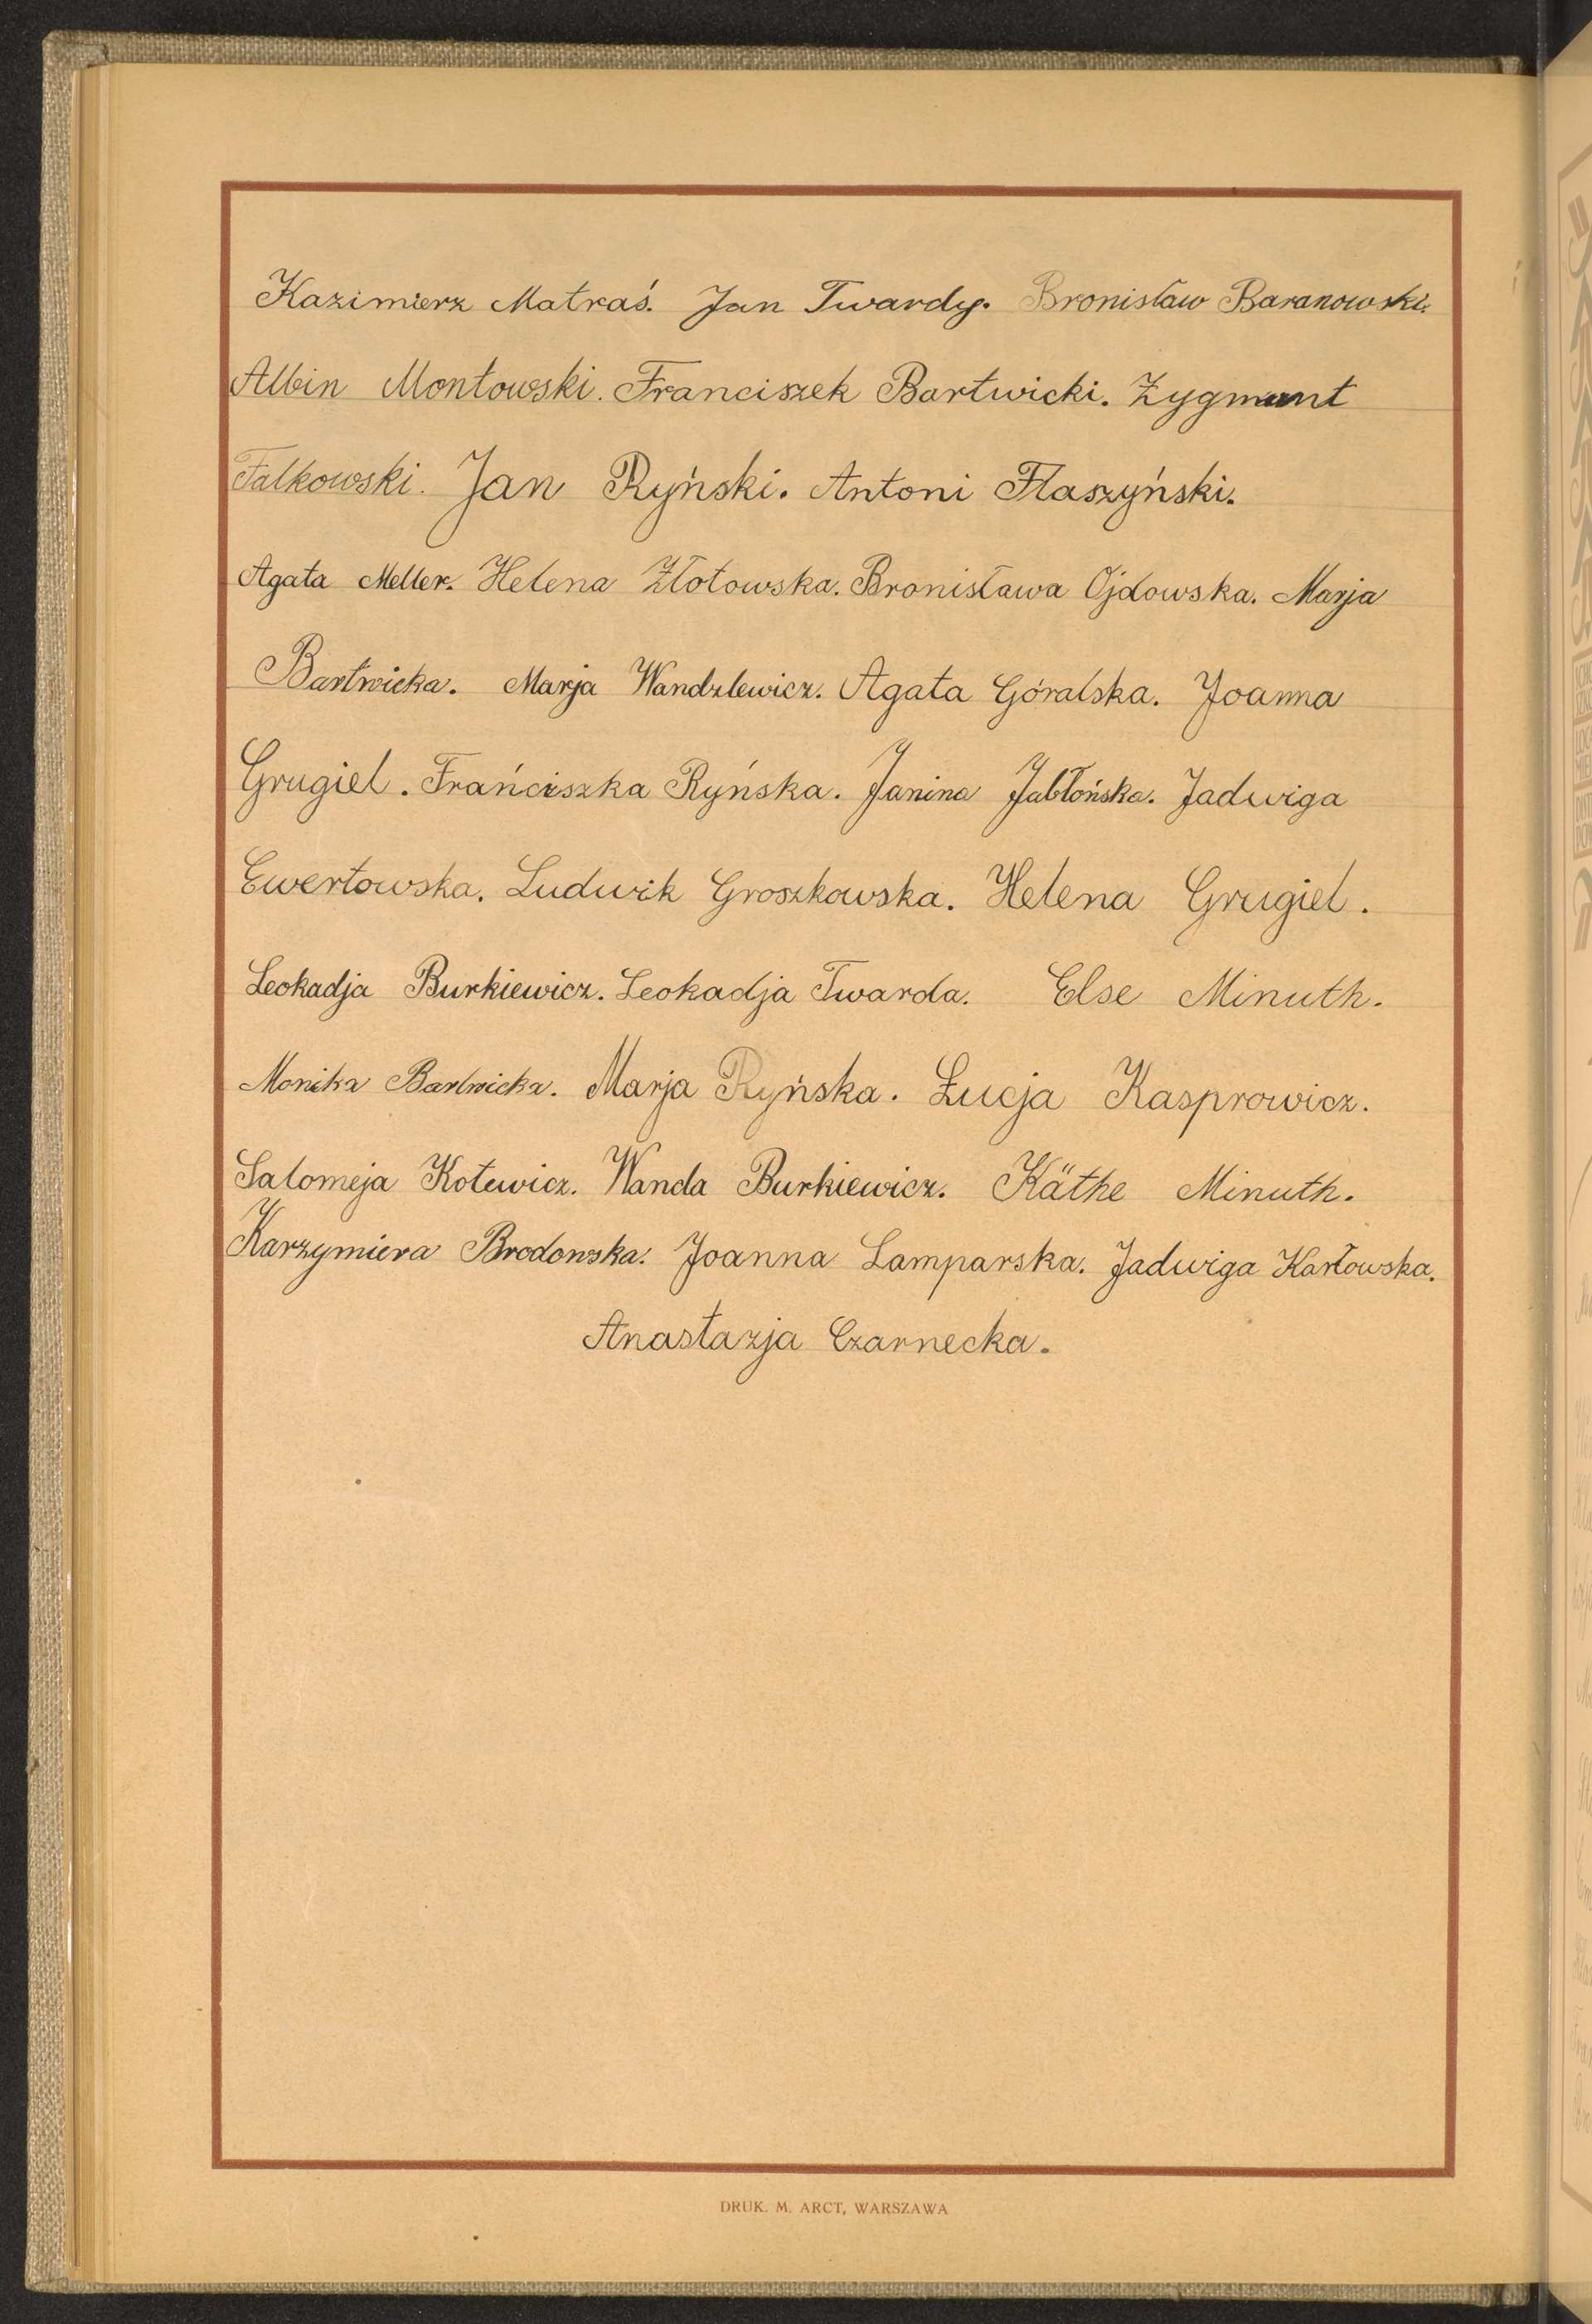 Kazimierz Matraś. Jan Twardy. Bronisław Baranowski.
Albin Montowski. Franciszek Bartwicki. Zygmunt
Falkowski. Jan Ryński. Antoni Flaszyński.
Agata Meller. Helena Złotowska. Bronisława Ojdowska. Marja
Bartwicka. Marja Wandzlewicz. Agata Góralska. Joanna
Grugiel. Frańciszka Ryńska. Janina Jabłońska. Jadwiga
Ewertowska. Ludwik Groszkowska. Helena Grugiel.
Leokadja Burkiewicz. Leokadja Twarda. Else Minuth.
Monika Bartwicka. Marja Ryńska. Łucja Kasprowicz.
Salomeja Kotewicz. Wanda Burkiewicz. Käthe Minuth.
Karzymiera Brodowska. Joanna Lamparska. Jadwiga Karłowska.
Anastazja Czarnecka.
DRUK. M. ARCT, WARSZAWA